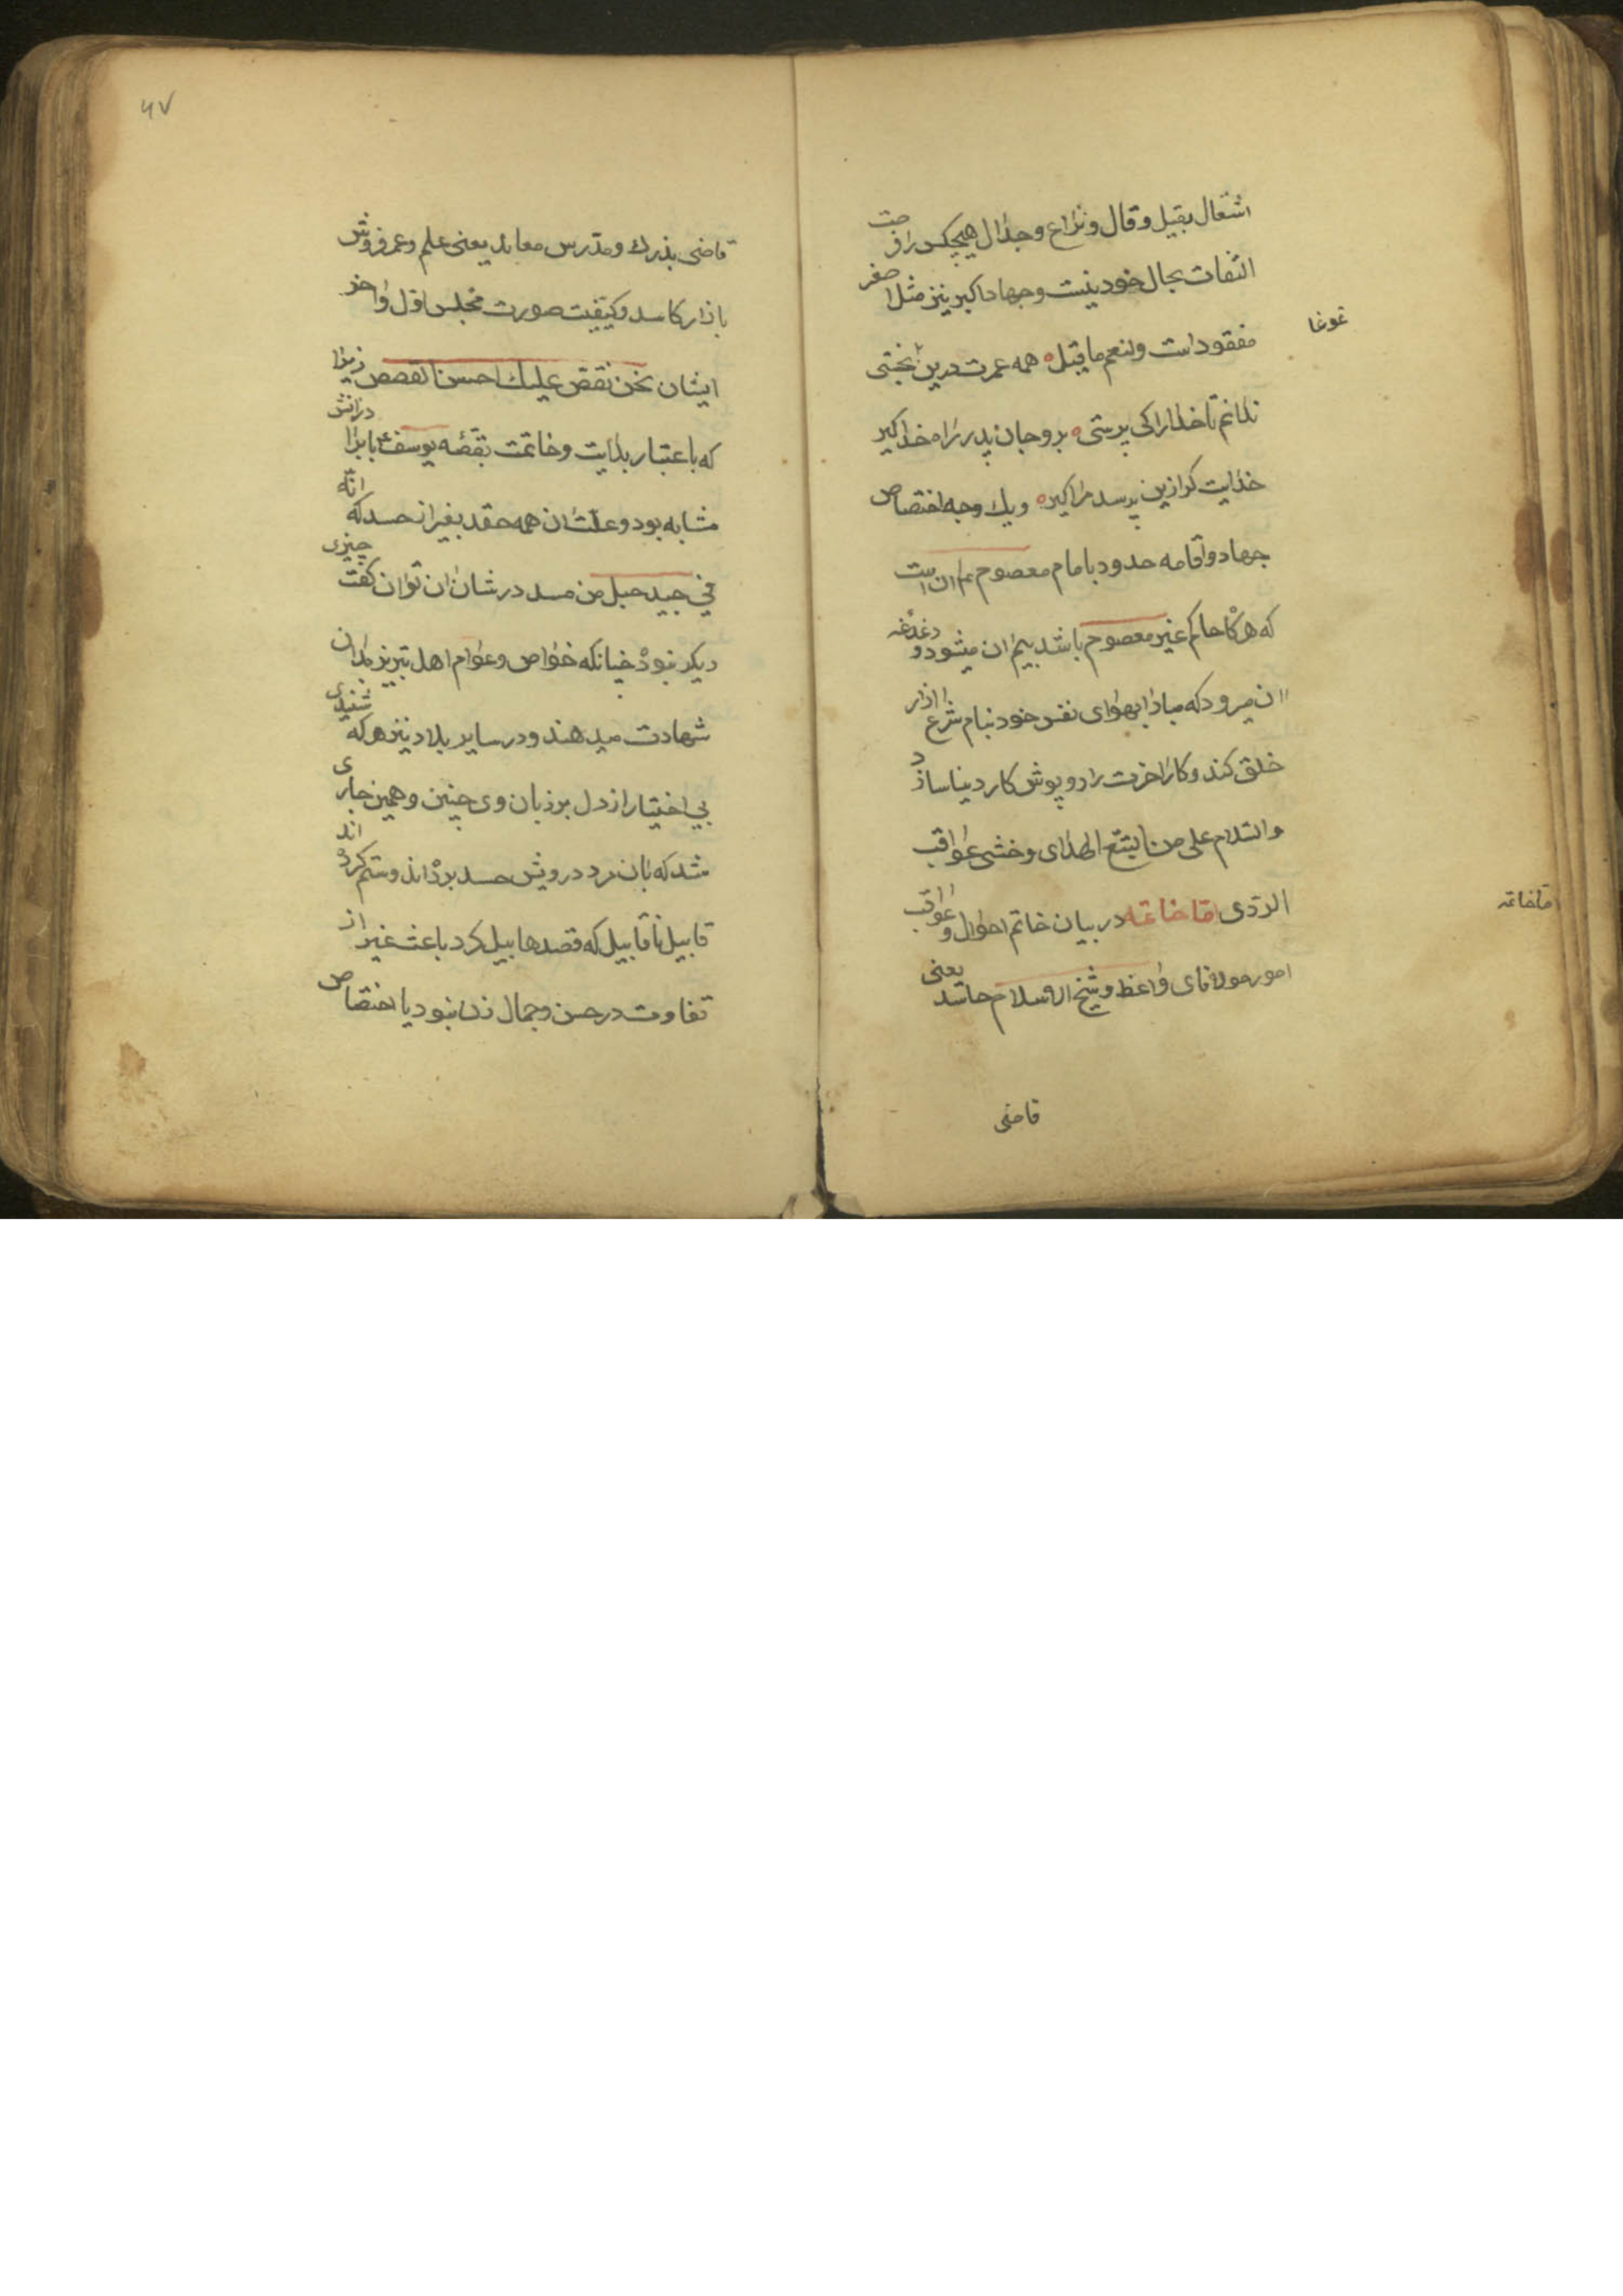 اشتغال بقیل و قال و نزاع و جدال هیچکس را فرصت
التفات بحال خود نیست و جهاد اکبر نیز مثل اصغر
مفقود است و لنعم ما قیل همه عمرت درین بختی
غوغا
ندانم تا خدا را کی پرستی برو جان پدر راه خدا گیر
خدایت گر ازین پرسد مرا گیر و یک وجه اختصاص
جهاد و اقامه حدود بامام معصوم ع م ان است
که هر گاه حاکم غیر معصوم باشد بیم ان میشود و دغدغه
ان میرود که مبادا بهوای نفس خود بنام شرع ازار
خلق کند و کار اخرت را روپوش کار دنیا سازد
والسلام علی من اتبع الهدی و خشی عواقب
الردی اما خاتمه در بیان خاتم احوال و عواقب
اما خاتمه
امور مولانای واعظ و شیخ الاسلام حاسد یعنی
قاضی
۶۷
قاضی بذرک و مدرس معاند یعنی علم و عمر فروش
بازار کاسد و کیفیت صورت مجلس اول و اخر
ایشان نحن نقص علیک احسن القصص زیرا
که باعتبار بدایت و خاتمت بقصه یوسف ع با برادرانش
مشابه بود و علت ان همه حقد بغیر از حسد که انه
فی جید حبل من مسد در شان ان توان گفت چیزی
دیگر نبود چنانکه خواص و عوام اهل تبریز بدان
شهادت میدهند و در سایر بلاد نیز هر که شنیدی
بی اختیار از دل بر زبان وی چنین و همین جاری
شد که بان مرد درویش حسد برده اند و ستم کرده اند
قابیل ناقابیل که قصد هابیل کرد باعث غیر از
تفاوت در حسن و جمال زن نبود یا اختصاص